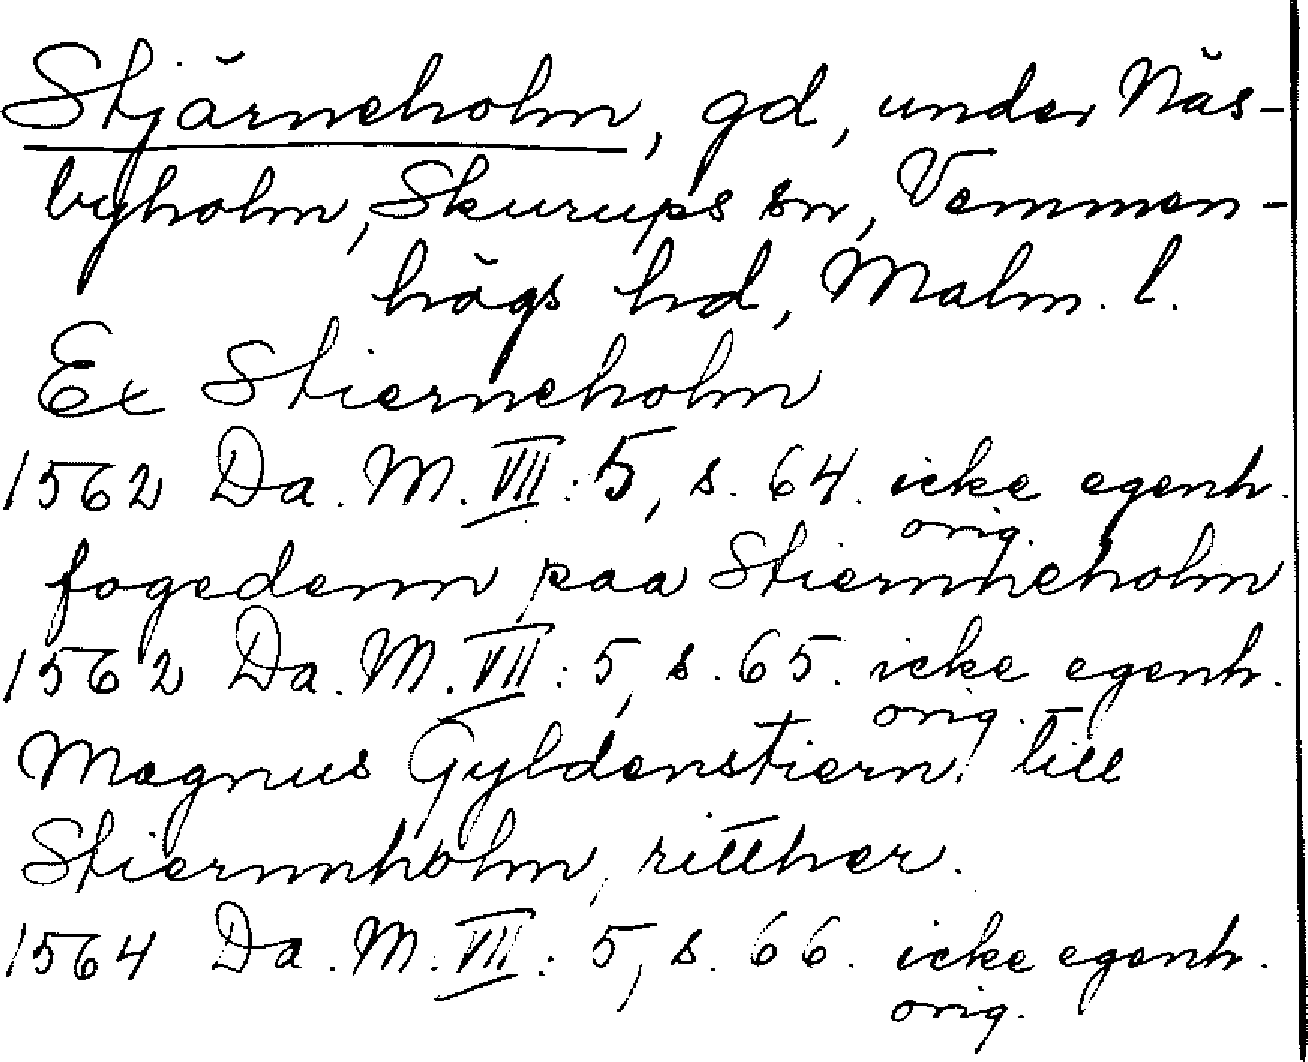 Stjärneholm, gd, under Näs-
byholm, Skurups sn, Vemmen-
högs hd, Malm. l.
Ex Stierneholm
1562 Da. M. VII: 5, s. 64. icke egenh.
orig.
fogedenn paa Stiernneholm
1562 Da. M. VII: 5, s. 65. icke egenh.
orig.
Magnus Gyldenstiern! till
Stiernnholm, ritther.
1564 Da. M. VII: 5, s. 66. icke egenh.
orig.